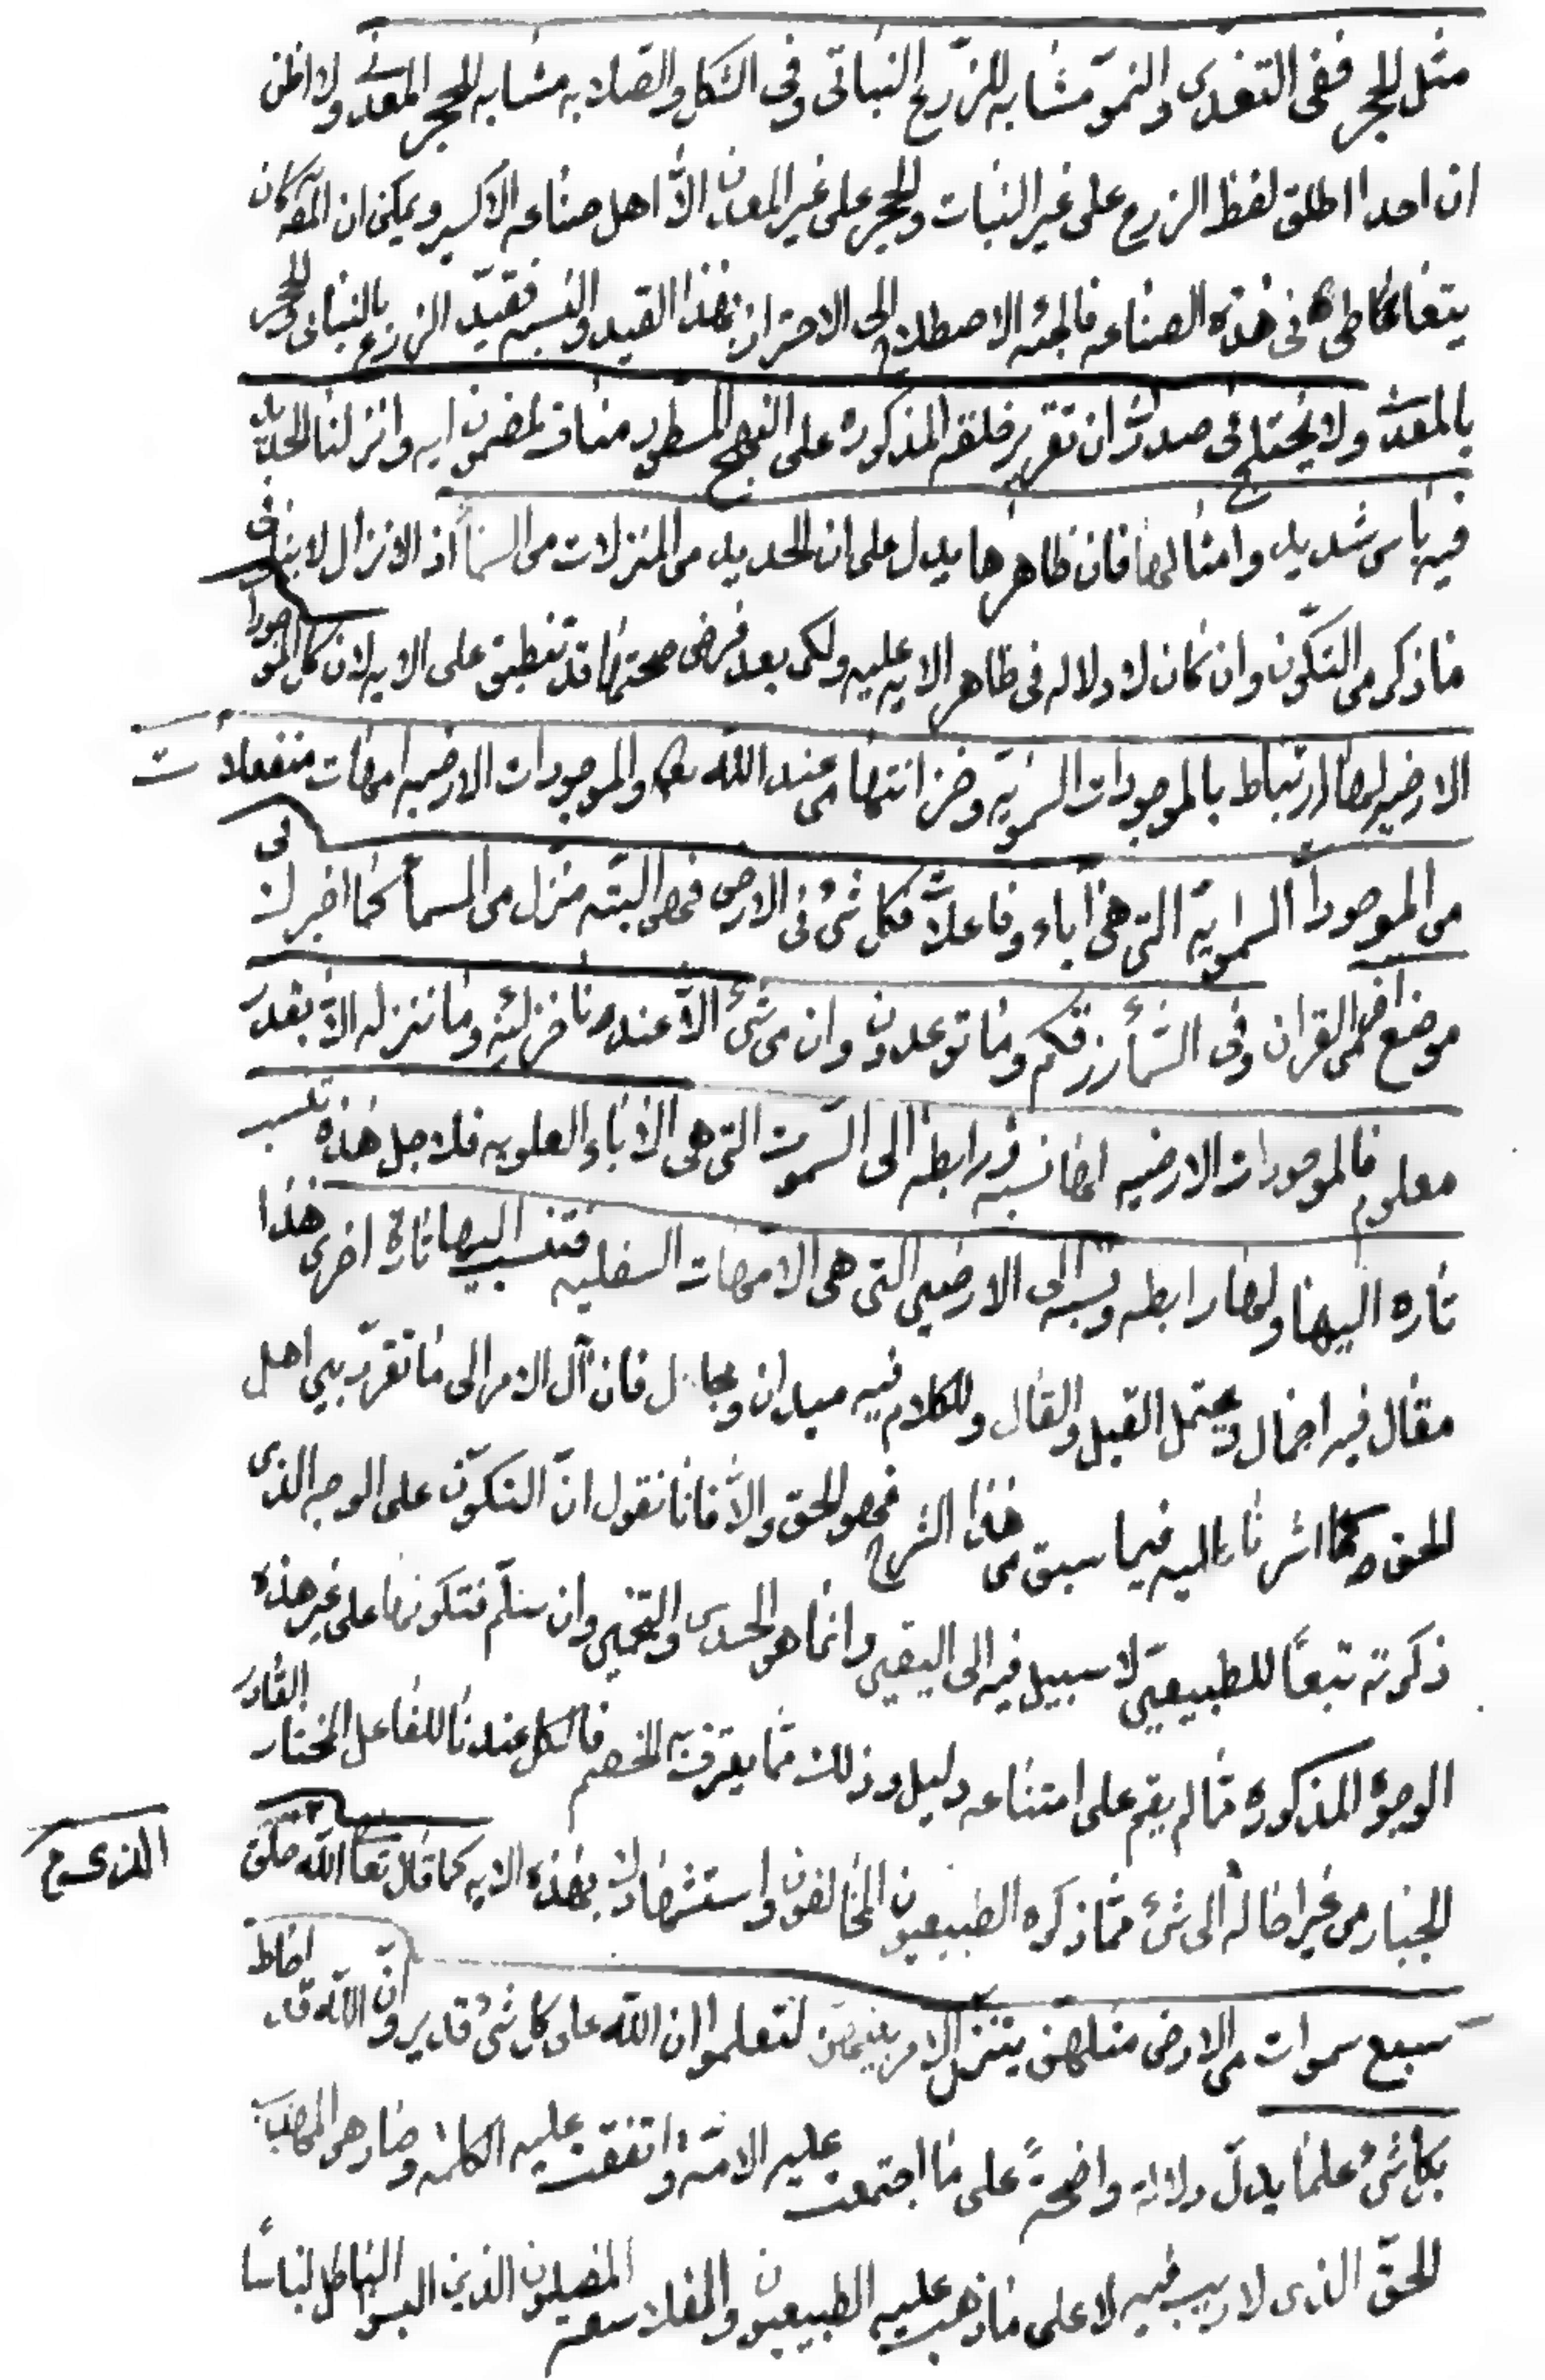 مثل الحجر ففى التغذى والنمو مشابه للزرع النباتى وفى الشكل والصلابه مشابه للحجر المعدنى ولا اظن
ان احدا اطلق لفظ الزرع على غير النبات والحجر على غير المعادن الا اهل صناعه الاكسير ويمكن ان المص كان
فى هذه الصناعه فالجئه الاصطلاح الى الاحتراز بهذا القيد والنسبه فقيد الزرع بالنباتى والحجر
بالمعدنى ولا يختلج فى صدرك ان تقرير خلقه المذكوره على النهج المسطور مناف لمضمون ايه وانزلنا الحديد
فيه باس شديد وامثالها فان ظاهرها يدل على ان الحديد من المنزلات من السماء اذ الانزال لا ينافى
ما ذكر من التكون وان كان لا دلاله فى ظاهر الايه عليه ولكن بعد فرض صحتها قد تنطبق على الايه لان كل الموجودات
الارضيه لها ارتباط بالموجودات السمويه وخزانتها من عند الله تعالى والموجودات الارضيه امهات منفعلات
من الموجودات السماويه التى هى آباء وفاعلات فكل شئ فى الارض فهى البته منزل من السماء كما اخبر لك فى
موضع آخر من القران وفى السماء رزقكم وما توعدون وان من شئ الا عندنا خزائنه وما ننزله الا بقدر
معلوم فالموجودات الارضيه لها نسبه ورابطه الى السموت التى هى الاباء العلويه فلاجل هذه تنسب
تاره اليها ولها رابطه ونسبه الى الارضين التى هى الامهات السفليه فتنسب اليها تارة اخرى هذا
مقال فيه اجمال ويحتمل القيل والقال وللكلام فيه ميدان ومجال فان آل الامر الى ما تقرر بين اهل
الحق كما اشرنا اليه فيما سبق من هذا الشرح فهو الحق والا فانا نقول ان التكون على الوجه الذى
ذكرته تبعا للطبيعيين لا سبيل فيه الى اليقين وانما هو الحدس والتخمين وان سلم فتكونها على غير هذه
الوجوه المذكوره مما لم يقم على امتناعه دليل وذلك مما يعترف به الخصم فالكل عندنا للفاعل المختار القادر
الجبار من غير احاله الى شئ مما ذكره الطبيعيون المخالفون واستشهادك بهذه الايه كما قال تعالى الله خلق
الذى
سبع سموات من الارض مثلهن يتنزل الامر بينهن لتعلموا ان الله على كل شئ قدير وان الله قد احاط
بكل شئ علما يدل دلاله واضحة على ما اجتمعت عليه الامه واتفقت عليه الكلمه وصار هو المذهب
الحق الذى لا ريب فيه لا على ما ذهب عليه الطبيعيون والفلاسفه المضلون الذين البسوا الباطل لباسا